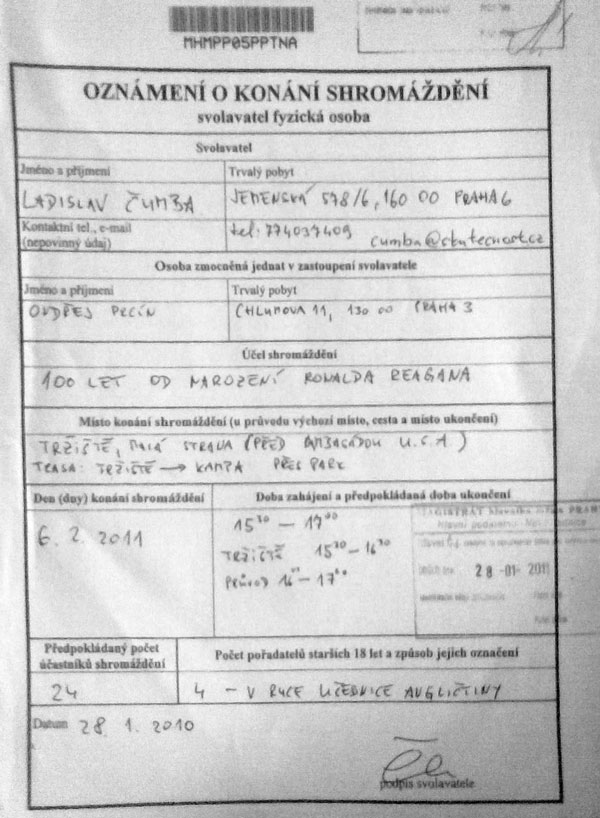 MHMPP05PPTNA
OZNÁMENÍ O KONÁNÍ SHROMÁŽDĚNÍ
svolavatel fyzická osoba
Svolavatel
Jméno a příjmení
Trvalý pobyt
LADISLAV ČUMBA
JEMENSKÁ 578/6, 160 00 PRAHA 6
Kontaktní tel., e-mail
(nepovinný údaj)
tel: 774037409
cumba@skutecnost.cz
Osoba zmocněná jednat v zastoupení svolavatele
Jméno a příjmení
Trvalý pobyt
ONDŘEJ
CHLUMOVA 11, 130 00 PRAHA 3
Účel shromáždění
100 LET OD NAROZENÍ RONALDA REAGANA
Místo konání shromáždění (u průvodu výchozí místo, cesta a místo ukončení)
TRŽIŠTĚ, MALÁ STRANA (PŘED AMBASÁDOU U.S.A.)
TRASA: TRŽIŠTĚ → KAMPA PŘES PARK
Den (dny) konání shromáždění
Doba zahájení a předpokládaná doba ukončení
6. 2. 2011
15³⁰ — 17⁰⁰
TRŽIŠTĚ 15³⁰ — 16³⁰
PRŮVOD — 17⁰⁰
MAGISTRÁT hlavního města PRAHY
28 -01- 2011
Předpokládaný počet
účastníků shromáždění
Počet pořadatelů starších 18 let a způsob jejich označení
24
4 – V RUCE UČEBNICE ANGLIČTINY
Datum 28. 1. 2010
podpis svolavatele